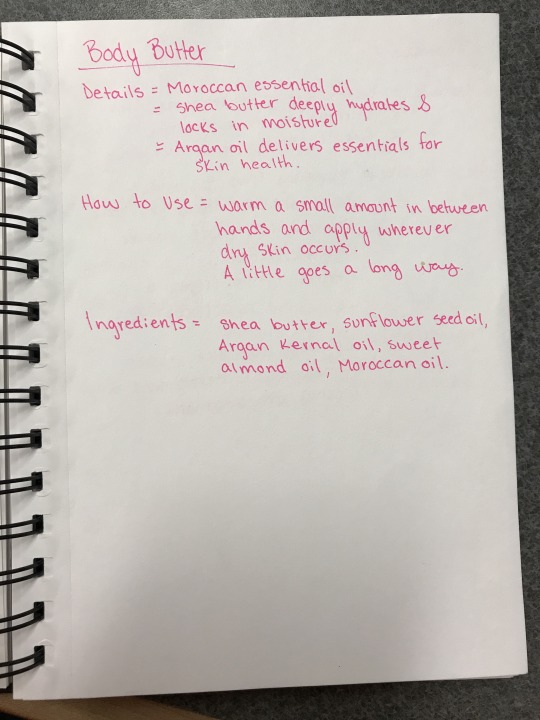 Body Butter
Details = Moroccan essential oil
= shea butter deeply hydrates &
locks in moisture
= Argan oil delivers essentials for
skin health.
How to Use = warm a small amount in between
hands and apply wherever
dry skin occurs.
A little goes a long way.
Ingredients = shea butter, sunflower seed oil,
Argan Kernal oil, sweet
almond oil, Moroccan oil.